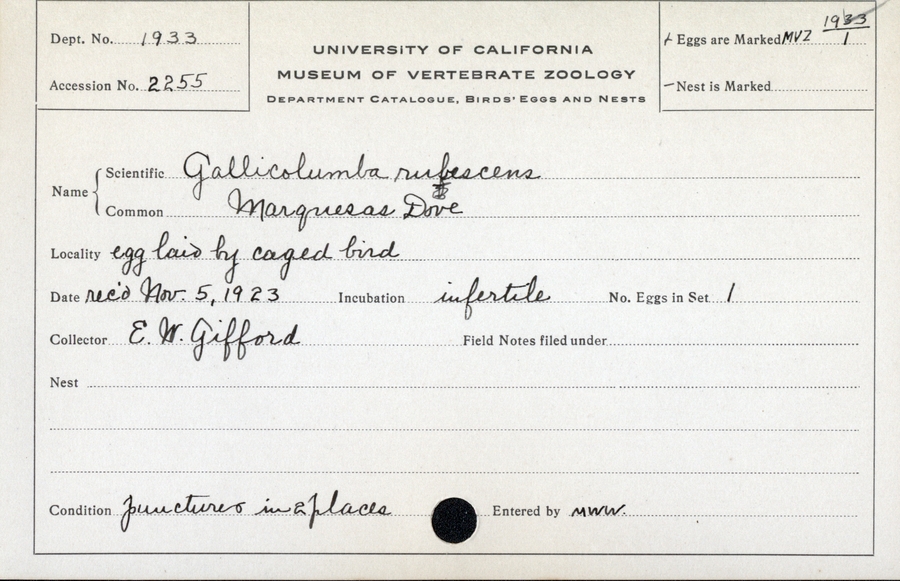 Dept. No. 1933
Accession No. 2255
UNIVERSITY OF CALIFORNIA
MUSEUM OF VERTEBRATE ZOOLOGY
DEPARTMENT CATALOGUE, BIRDS' EGGS AND NESTS
+ Eggs are Marked MVZ 1933/1
– Nest is Marked
Name { Scientific Gallicolumba rufescens
Common Marquesas Dove
Locality egg laid by caged bird
Date rec'd Nov. 5, 1923 Incubation infertile No. Eggs in Set 1
Collector E. W. Gifford Field Notes filed under
Nest
Condition punctures in 2 places Entered by MWW.